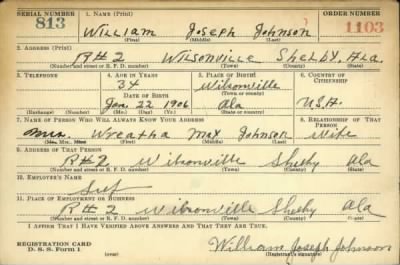 SERIAL NUMBER 1. NAME (Print) ORDER NUMBER
813 William Joseph Johnson 1103
(First) (Middle) (Last)
2. ADDRESS (Print)
R#2 Wilsonville Shelby, Ala.
(Number and street or R. F. D. number) (Town) (County) (State)
3. TELEPHONE 4. AGE IN YEARS 5. PLACE OF BIRTH 6. COUNTRY OF CITIZENSHIP
34 Wilsonville
DATE OF BIRTH (Town or county)
Jan. 22 1906 Ala U.S.A.
(Exchange) (Number) (Mo.) (Day) (Yr.) (State or country)
7. NAME OF PERSON WHO WILL ALWAYS KNOW YOUR ADDRESS 8. RELATIONSHIP OF THAT PERSON
Mrs. Wreatha Max Johnson Wife
(Mr., Mrs., Miss) (First) (Middle) (Last)
9. ADDRESS OF THAT PERSON
R#2 Wilsonville Shelby Ala
(Number and street or R. F. D. number) (Town) (County) (State)
10. EMPLOYER'S NAME
Self
11. PLACE OF EMPLOYMENT OR BUSINESS
R#2 Wilsonville Shelby Ala
(Number and street or R. F. D. number) (Town) (County) (State)
I AFFIRM THAT I HAVE VERIFIED ABOVE ANSWERS AND THAT THEY ARE TRUE.
REGISTRATION CARD William Joseph Johnson
D. S. S. Form 1 (over) (Registrant's signature)